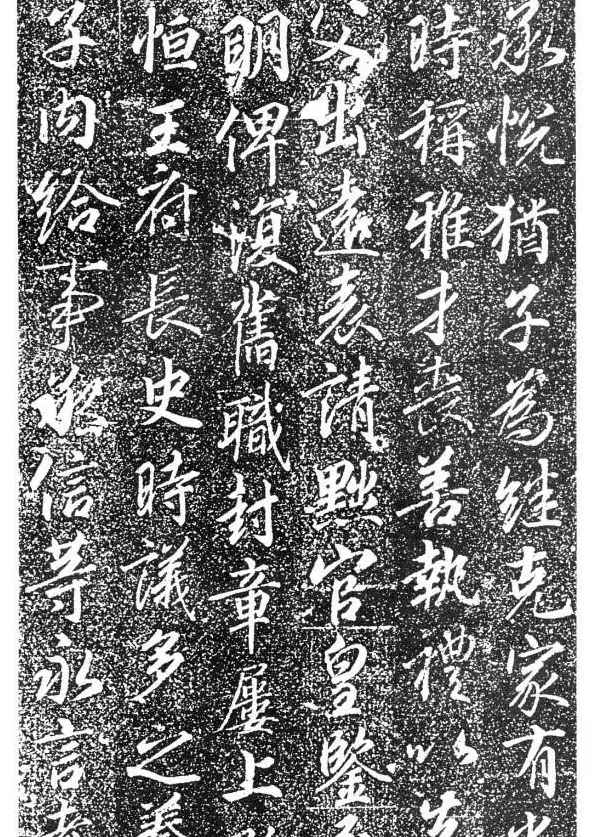 承悦猶子為継克家有
時稱雅才喪善執禮以先
父出遠表請黜官皇鑒
明俾復舊職封章屢上
恒王府長史時議多之暮
子内給事承信等永言孝